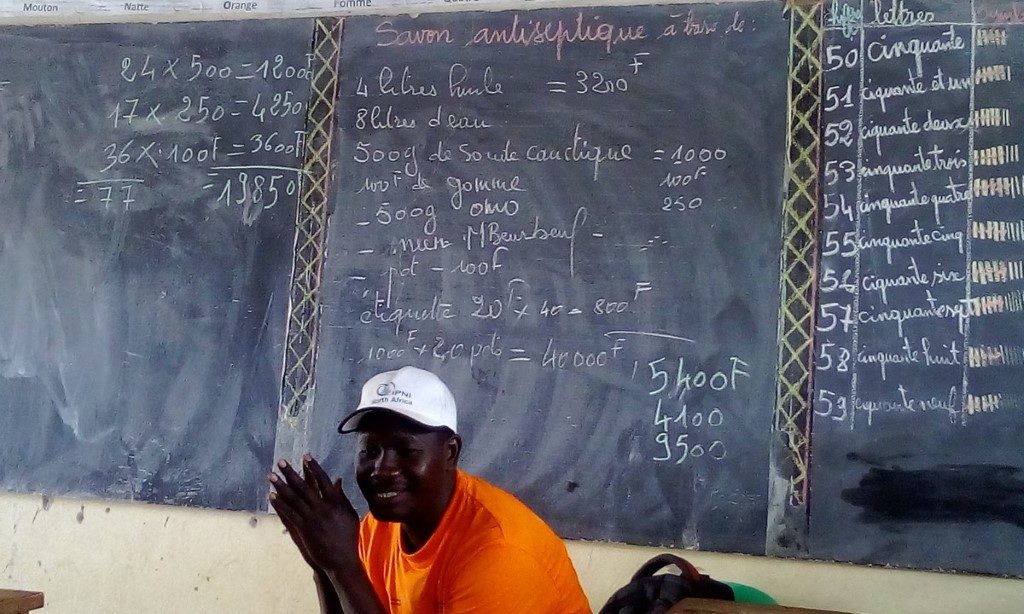 Mouton Natte Orange Pomme
24 × 500 = 1200F
17 × 250 = 4250
36 × 100F = 3600F
= 77 = 19850
Savon antiseptique à base de:
4 litres huile = 3200F
8 litres d'eau
500g de Soude caustique = 1000
100F de gomme 100F
- 500g omo 250
- pot - 100F
étiquette 20F × 40 = 800F
1000F × 20 pots = 40000F
5400F
4100
9500
lettres
50 cinquante
51 ciquante et un
52 ciquante deux
53 cinquante trois
54 cinquante quatre
55 cinquante cinq
56 ciquante six
57 cinquante sept
58 cinquante huit
59 ciquante neuf
IPNI
North Africa